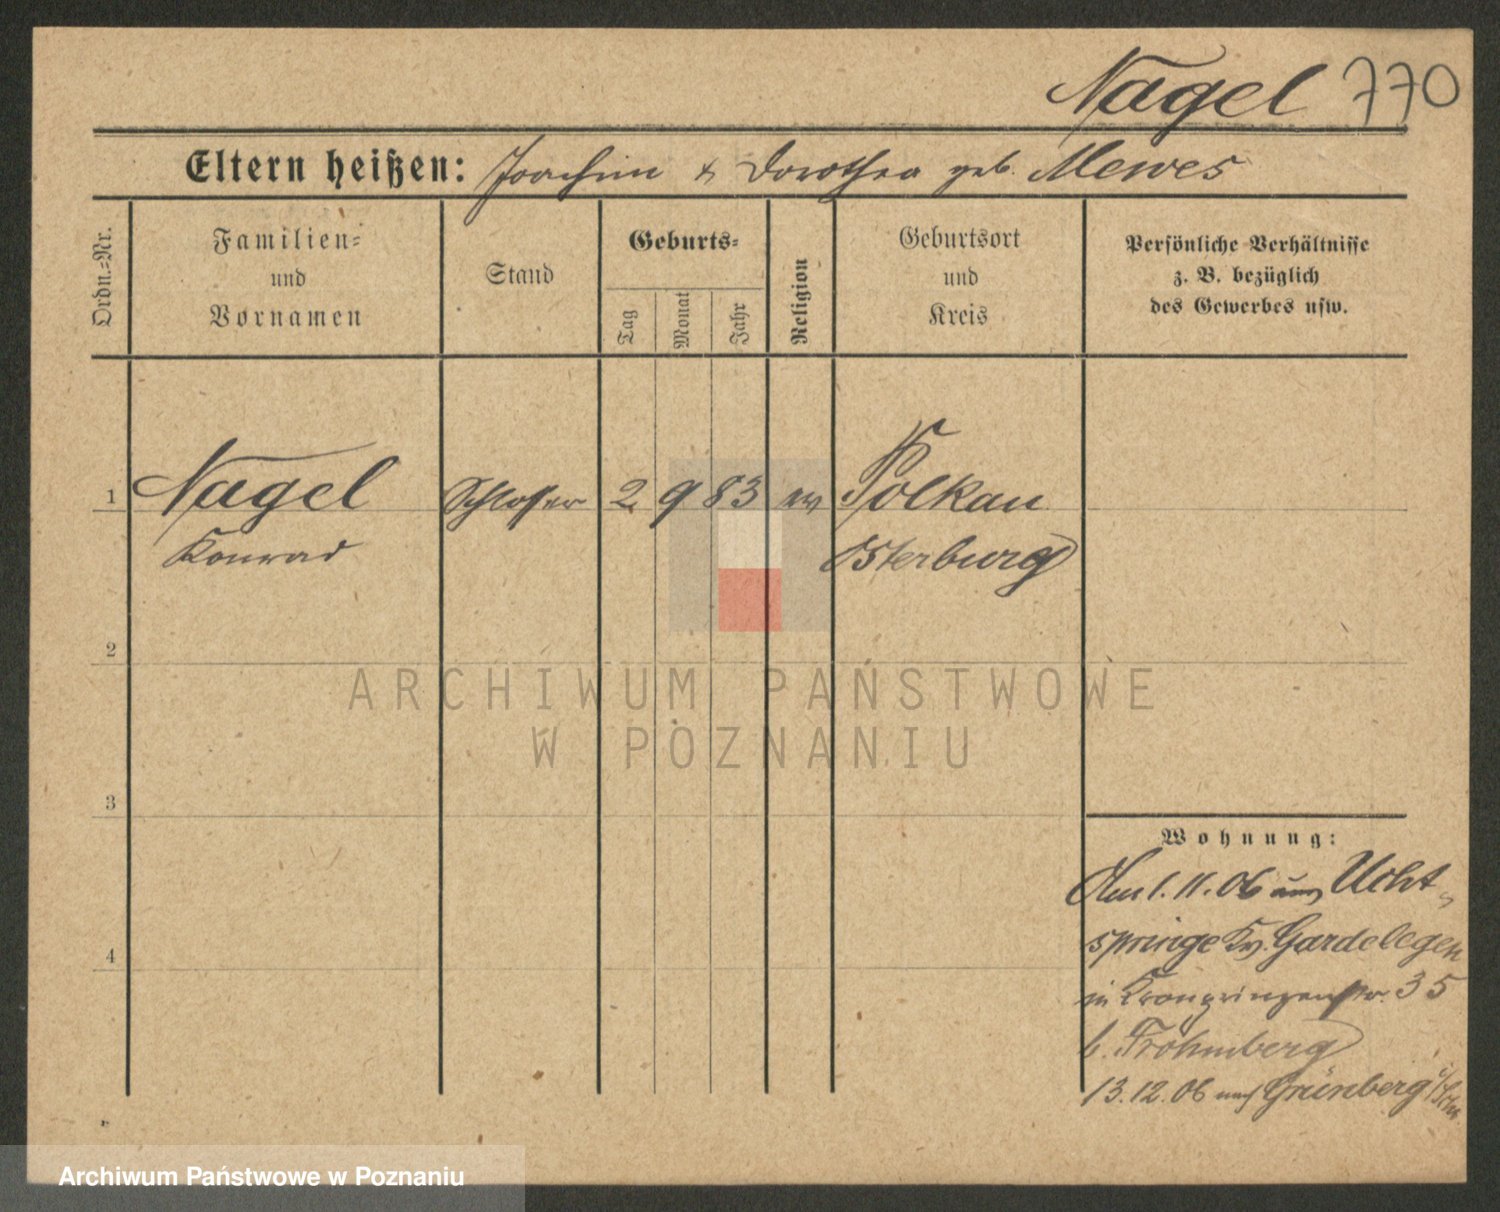 Nagel 770
Eltern heißen: Joachim & Dorothea geb. Mewes
Ordn.=Nr.
Familien=
und
Vornamen
Stand
Geburts=
Tag
Monat
Jahr
Religion
Geburtsort
und
Kreis
Persönliche Verhältnisse
z. B. bezüglich
des Gewerbes usw.
1 Nagel Schlosser 2 9 83 ev Polkau
Konrad Osterburg
2
3
4
Wohnung:
Am 1. 11. 06 aus Ucht-
springe Kr. Gardelegen
in Kronprinzenstr. 35
b. Frohmberg
13. 12. 06 nach Grünberg i/Schl
ARCHIWUM PAŃSTWOWE
W POZNANIU
Archiwum Państwowe w Poznaniu